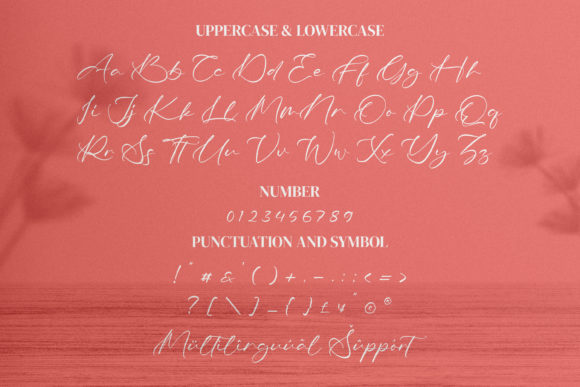 UPPERCASE & LOWERCASE
Aa Bb Cc Dd Ee Ff Gg Hh
Ii Jj Kk Ll Mm Nn Oo Pp Qq
Rr Ss Tt Uu Vv Ww Xx Yy Zz
NUMBER
0 1 2 3 4 5 6 7 8 9
PUNCTUATION AND SYMBOL
! " # & ' ( ) + , - . : ; < = >
? [ \ ] _ { } £ ¥ " © ®